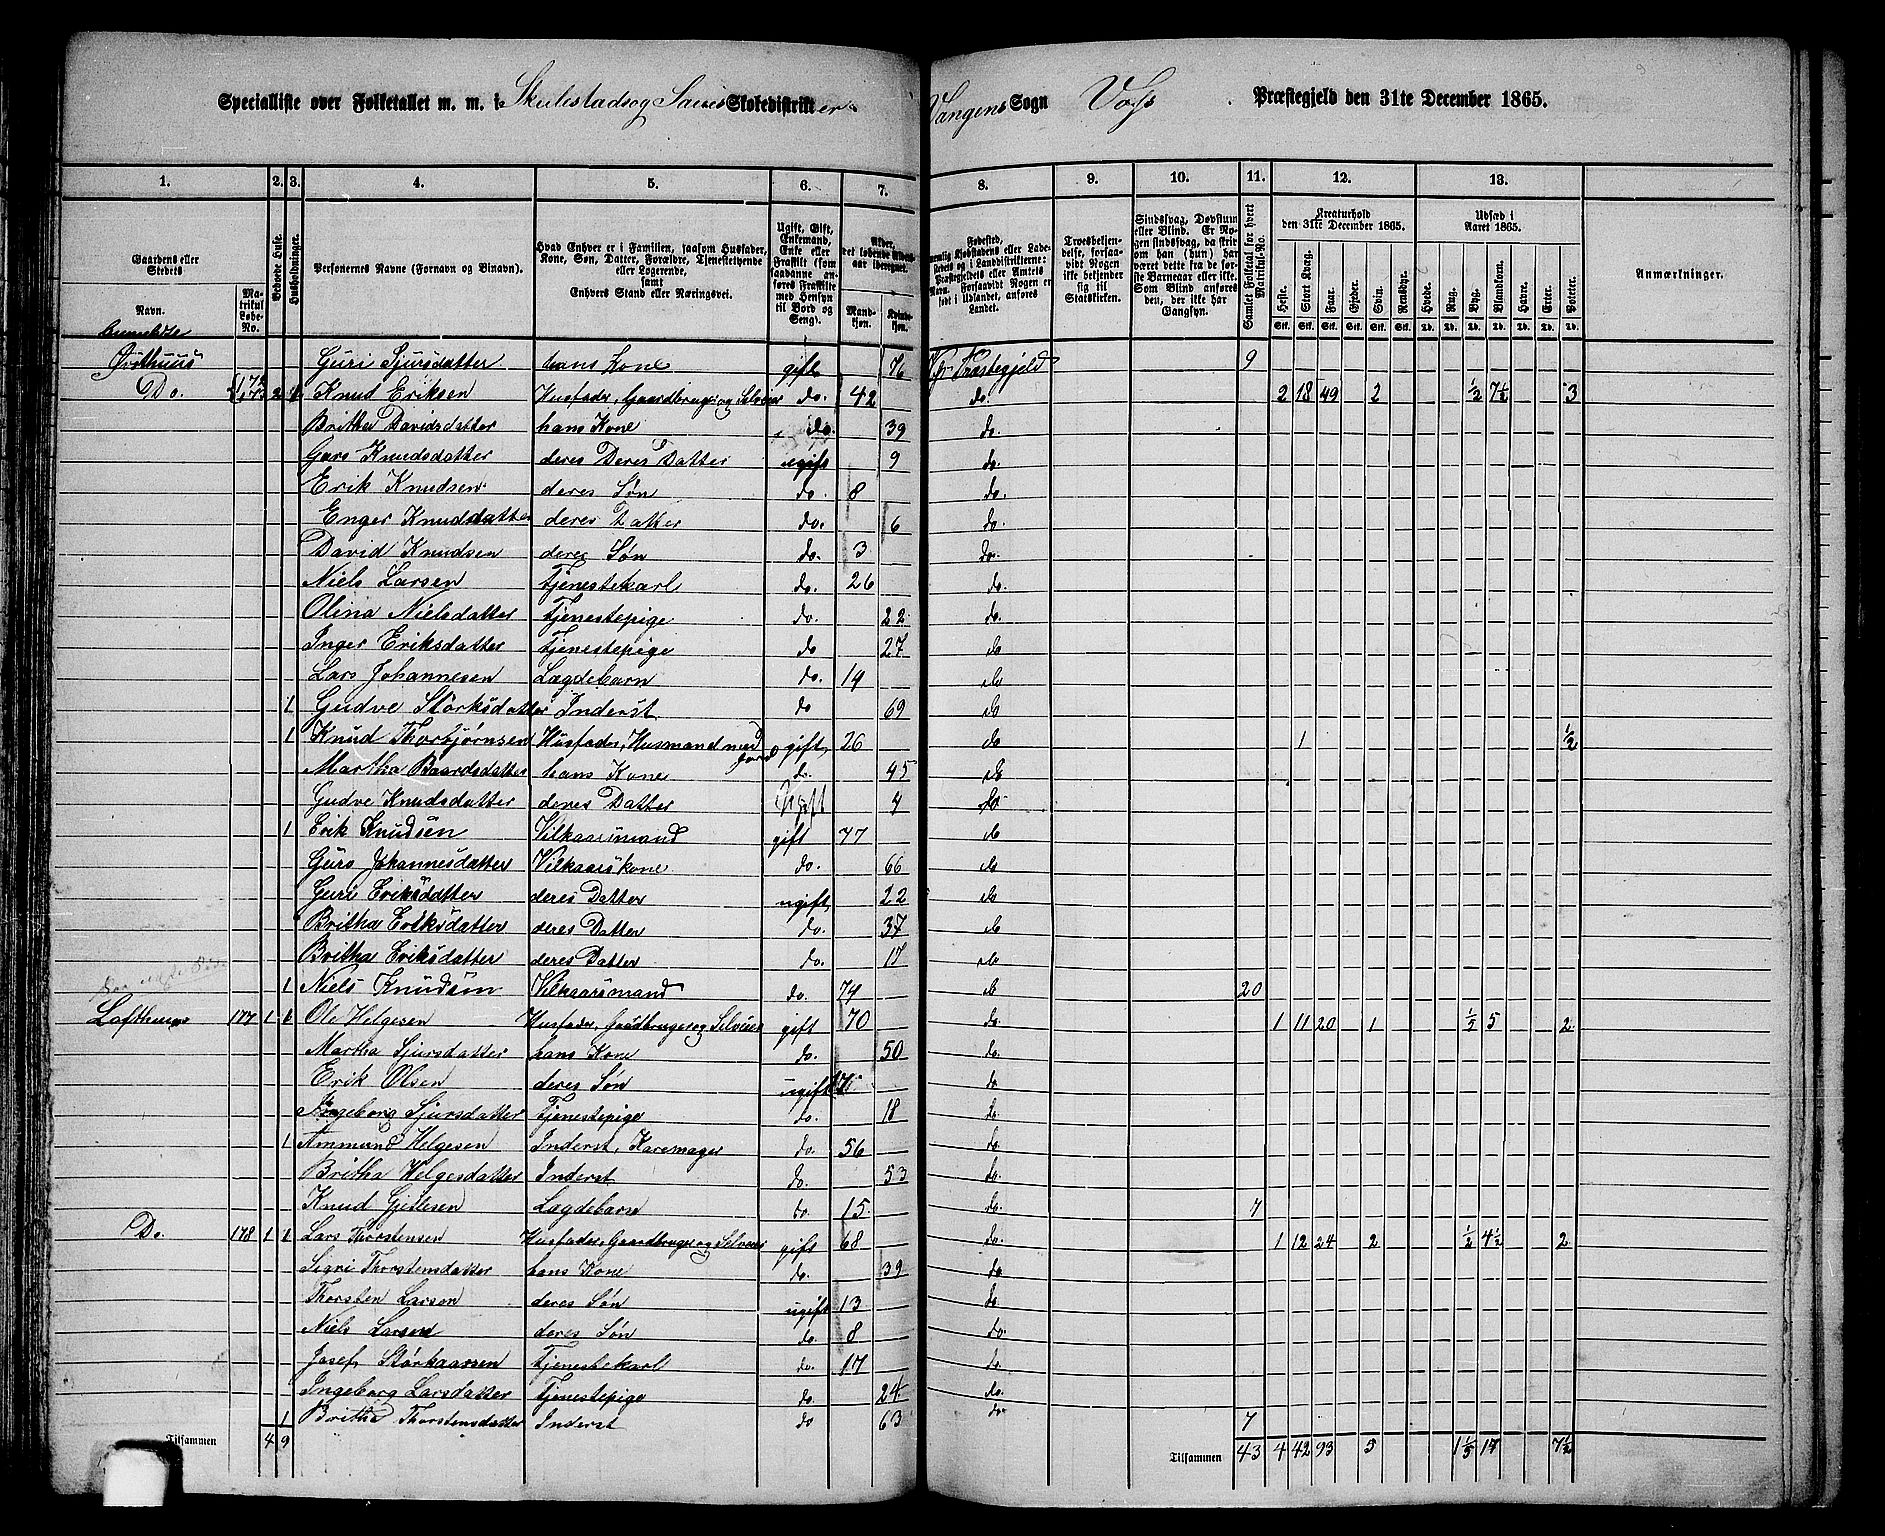 Specialliste over Folketallet m. m. i Skulestads og Saues Skoledistrikter Vangens Sogn Voss Præstegjeld den 31te December 1865.
1. 2. 3. 4. 5. 6. 7. 8. 9. 10. 11. 12. 13.
Gaardens eller Stedets Navn. Matrikul Løbe-No. Beboede Huse. Husholdninger. Personernes Navne (Fornavn og Tilnavn). Hvad Enhver er i Familien, saasom Husfader, Kone, Søn, Datter, Forældre, Tjenestetyende eller Logerende, samt Enhvers Stand eller Næringsvei. Ugift, Gift, Enkemand, Enke eller Fraskilt (som saadanne anføres Fraskilte med Hensyn til Bord og Seng). Alder, det løbende Alders-aar iberegnet. Mandkjøn. Kvindekjøn. Fødested, Trosbekjendelse, forsaavidt Nogen ikke bekjender sig til Statskirken. Sindssvag, Døvstum eller Blind. Er Nogen sindssvag, da skrives om han (hun) har været dette fra de første Barneaar eller ei. Som Blind anføres den, der ikke har Gangsyn. Samlet Folketal for hvert Matrikul-No. Kreaturhold den 31te December 1865. Udsæd i Aaret 1865. Anmærkninger.
Heste. Stort Kvæg. Faar. Gjeder. Svin. Rensdyr. Hvede. Rug. Byg. Blandkorn. Havre. Erter. Poteter.
Guri Sjursdatter hans Kone gift 76 V Præstegjeld 9
Do. 2 Knud Eriksen Husfader, Gaardbruger og Selveier do. 42 do 2 18 49 2 1/2 7 1/2 3
Britha Davidsdatter hans Kone do. 39 do.
Guro Knudsdatter deres Deres Datter ugift 9 do.
Erik Knudsen deres Søn do. 8 do.
Enger Knudsdatter deres Datter do. 6 do.
David Knudsen deres Søn do. 3 do.
Niels Larsen Tjenestekarl do. 26 do.
Olina Nielsdatter Tjenestepige do. 22 do.
Inger Eriksdatter Tjenestepige do 27 do
Lars Johannesen Lægdebarn do. 14 do
1 Gudve Storksdatter Inderst do 69 do
1 Knud Thorbjørnsen Husfader, Husmand med Jord gift 26 do 1 1/2
Martha Baardsdatter hans Kone do. 45 do
Gudve Knudsdatter deres Datter Ugift 4 do
1 Erik Knudsen Vilkaarsmand gift 77 do
Guro Johannesdatter Vilkaarskone do. 66 do
Guri Eriksdatter deres Datter ugift 22 do
Britha Eriksdatter deres Datter do. 37 do
Britha Eriksdatter deres Datter do. 17 do
1 Niels Knudsen Vilkaarsmand do. 74 do 20
Lofthuus 177 1 Ole Helgesen Husfader, Gaardbruger og Selveier gift 70 do. 1 11 20 1 1/5 5 2
Martha Sjursdatter hans Kone do. 50 do.
Erik Olsen deres Søn ugift do
Ingeborg Sjursdatter Tjenestepige do. 18 do.
1 Ammund Helgesen Inderst, Karemager do 56 do.
Britha Helgesdatter Inderst do. 53 do.
Knud Gjellesen Lægdebarn do. 15. do. 7
Do. 178 1 1 Lars Thorstensen Husfader, Gaardbruger og Selveier gift 68 do. 1 12 24 2 1/2 4 1/2 2
Sigri Thorstensdatter hans Kone do. 39 do
Thorsten Larsen deres Søn ugift 13 do.
Niels Larsen deres Søn do. 8 do.
Josef Størkaarssen Tjenestekarl do. 17 do.
Ingeborg Larsdatter Tjenestepige do. 24 do.
1 Britha Thorstensdatter Inderst do 63 do. 7
Tilsammen 4 9 Tilsammen 43 4 42 93 5 1 1/5 17 7 1/2